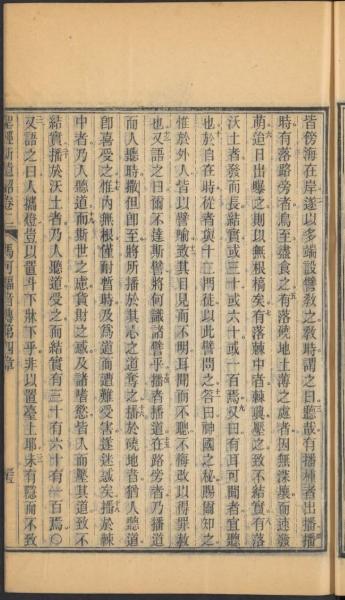 皆傍海在岸遂以多端設譬教之教時謂之曰聽哉有播種者出播播
時有落路傍者鳥至盡食之有落磽地土薄之處者因無深壤而速發
萌迨日出曝之則以無根槁矣有落棘中者棘興壓之致不結實有落
沃土者發而長結實或三十或六十或一百焉又曰有耳可聞者宜聽
也於自在時從者與十二門徒以此譬問之答曰神國之秘賜爾知之
惟於外人皆以譬喻致其目見而不明耳聞而不聰不悔改以得罪赦
也又語之曰爾不達斯譬將何識諸譬乎播者播道在路旁者乃播道
而人聽時撒但即至將所播於其心之道奪之播於磽地者猶人聽道
即喜受之惟內無根僅耐暫時及為道而遭難受害遂迷惑矣播於棘
中者乃人聽道而斯世之慮貨財之惑及諸嗜慾皆入而壓其道致不
結實播於沃土者乃人聽道受之而結實有三十有六十有一百焉〇
又語之曰人攜燈豈以置斗下牀下乎非以置臺上耶未有隱而不致
聖經新遺詔卷二 馬可福音傳第四章